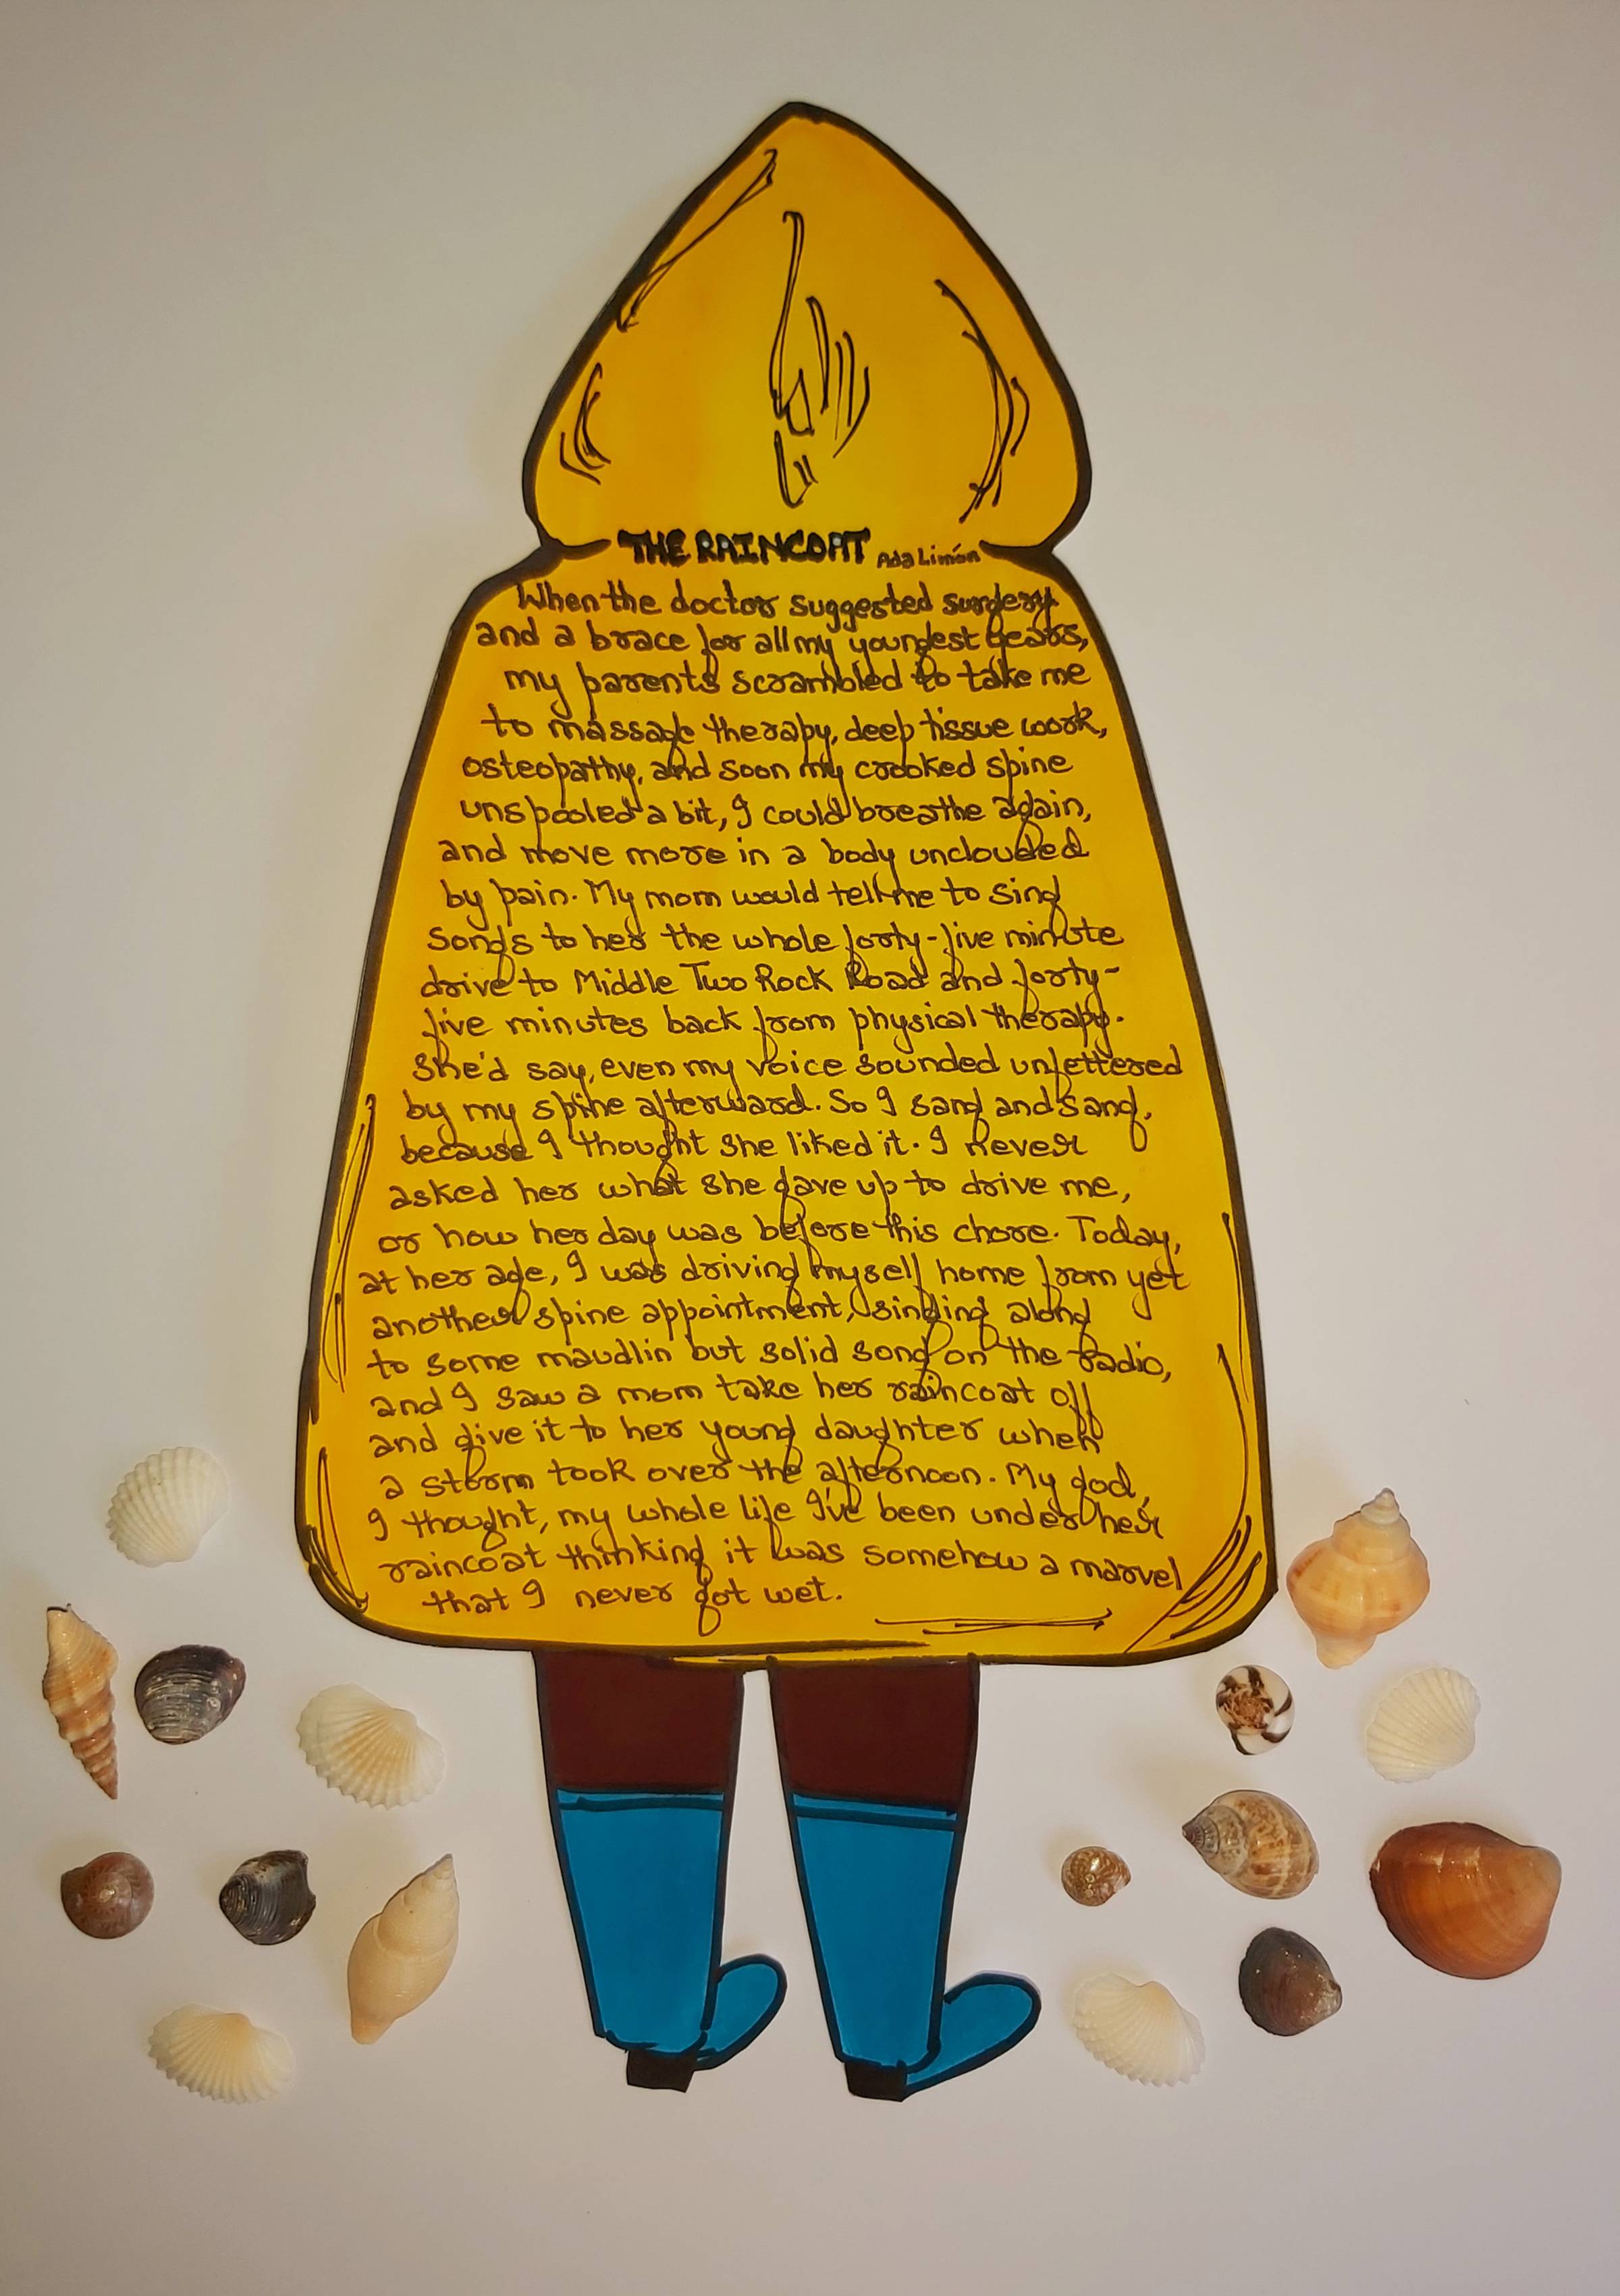 THE RAINCOAT Ada Limón
When the doctor suggested surgery
and a brace for all my youngest years,
my parents scrambled to take me
to massage therapy, deep tissue work,
osteopathy, and soon my crooked spine
unspooled a bit, I could breathe again,
and move more in a body unclouded
by pain. My mom would tell me to sing
songs to her the whole forty-five minute
drive to Middle Two Rock Road and forty-
five minutes back from physical therapy.
She'd say, even my voice sounded unfettered
by my spine afterward. So I sang and sang,
because I thought she liked it. I never
asked her what she gave up to drive me,
or how her day was before this chore. Today,
at her age, I was driving myself home from yet
another spine appointment, singing along
to some maudlin but solid song on the radio,
and I saw a mom take her raincoat off
and give it to her young daughter when
a storm took over the afternoon. My god,
I thought, my whole life I've been under her
raincoat thinking it was somehow a marvel
that I never got wet.